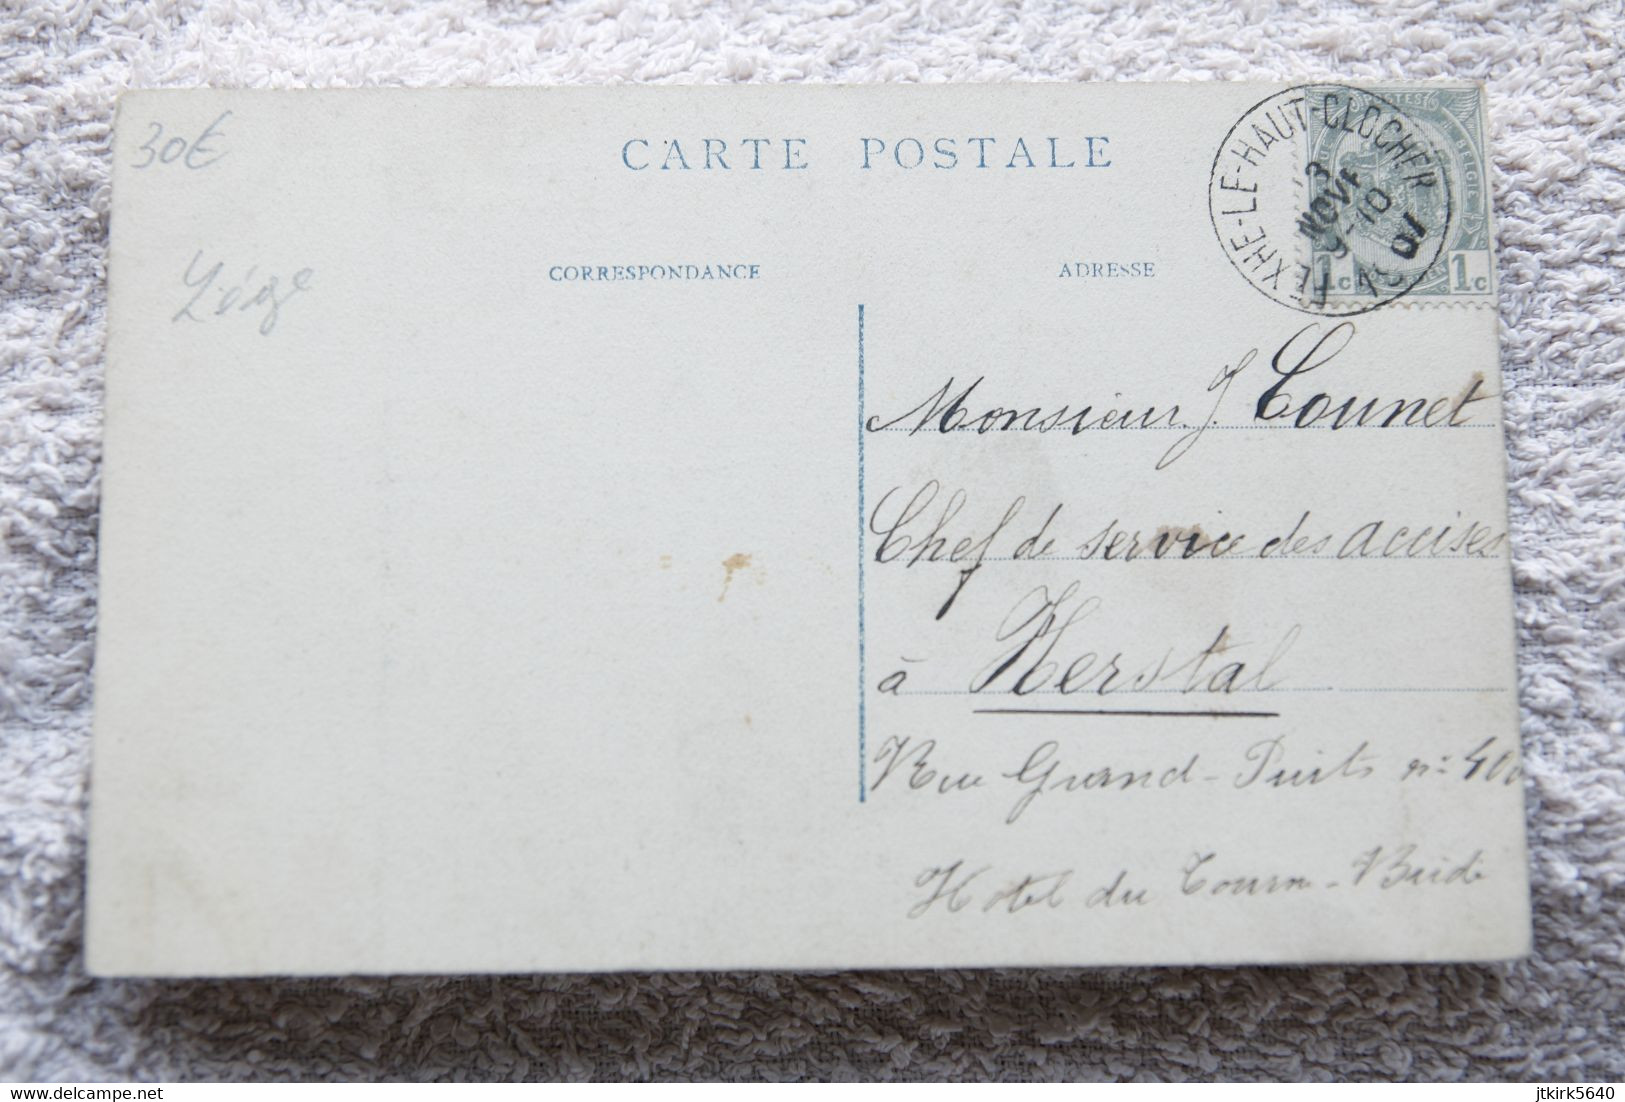 30€
Liége
CARTE POSTALE
CORRESPONDANCE
ADRESSE
FEXHE-LE-HAUT-CLOCHER
13
NOVE
9-10
1907
1c 1c
Monsieur J. Counet
Chef de service des accises
à Herstal
Rue Grand-Puits n:
Hotel du Tourne-Bride
www.delcampe.net
jtkirk5640